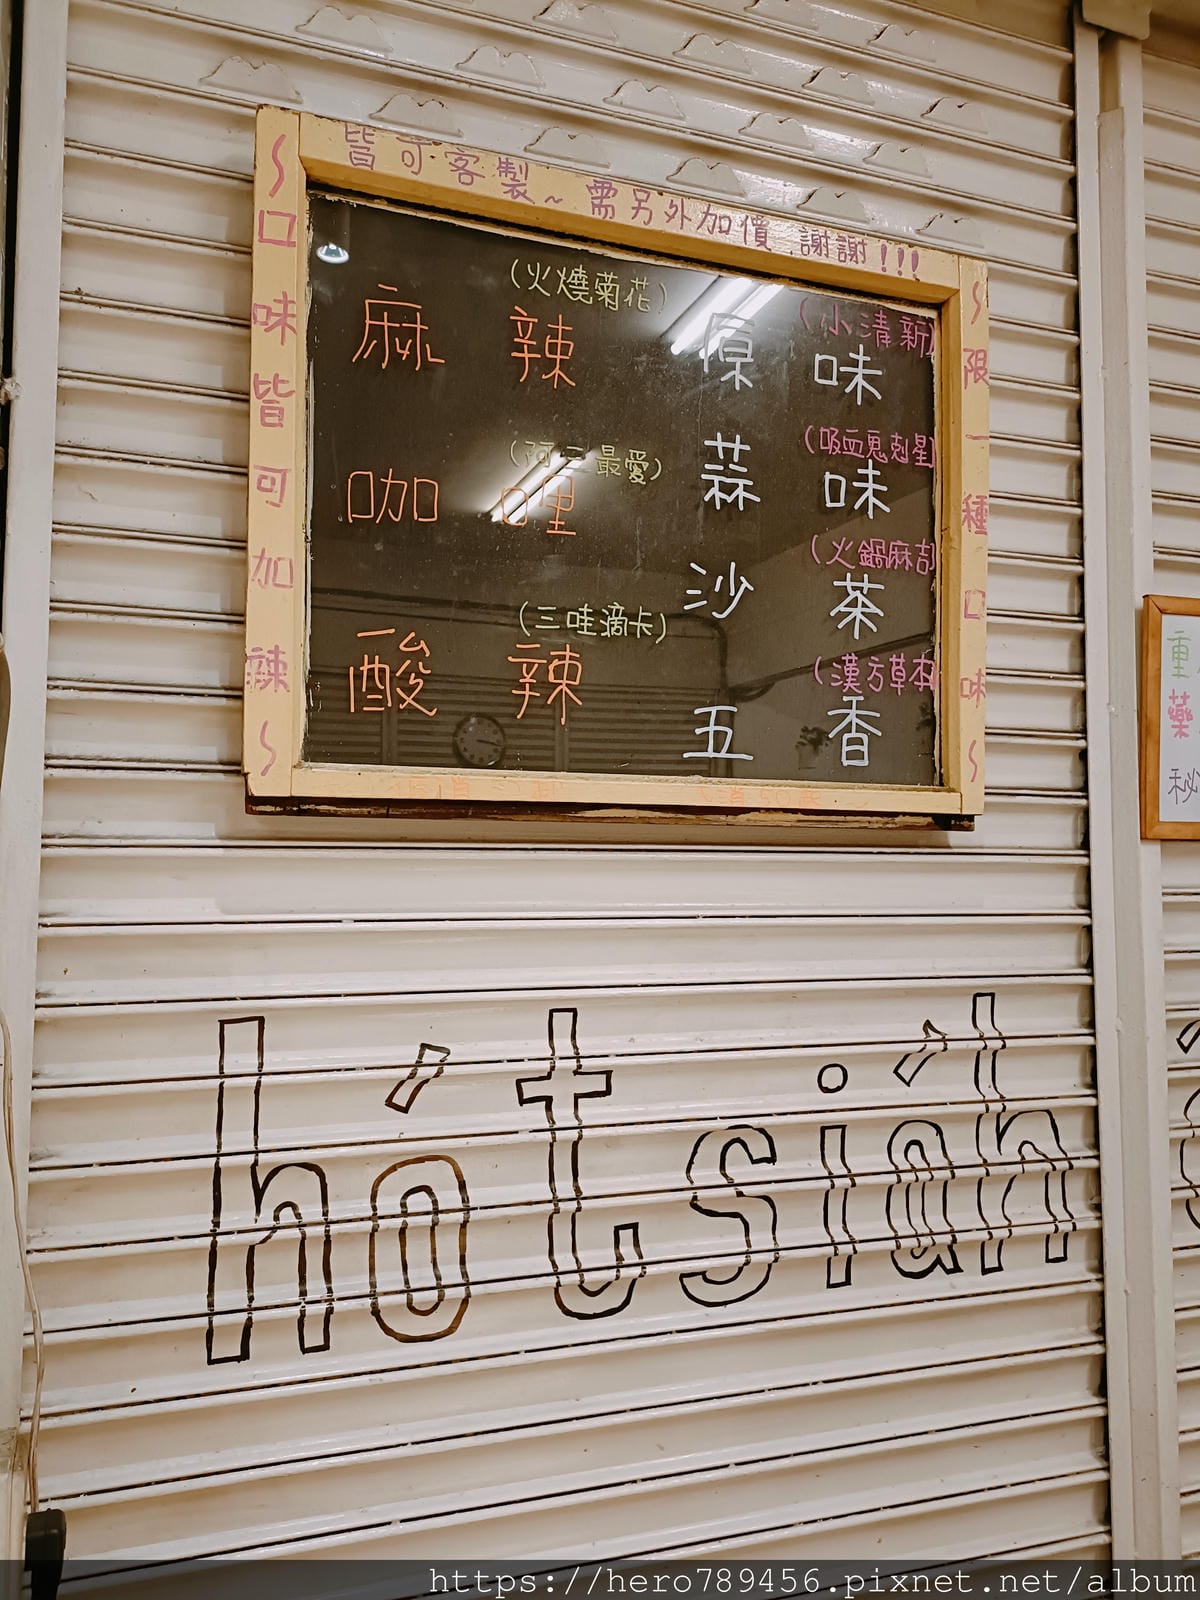 皆可客製~需另外加價 謝謝!!!
~口味皆可加辣~
(火燒菊花)
麻辣
(阿三最愛)
咖哩
(三哇滴卡)
酸辣
(小清新)
原味
(吸血鬼剋星)
蒜味
(火鍋麻吉)
沙茶
(漢方草本)
五香
~限一種口味~
重
藥
秘
hót siáh
https://hero789456.pixnet.net/album